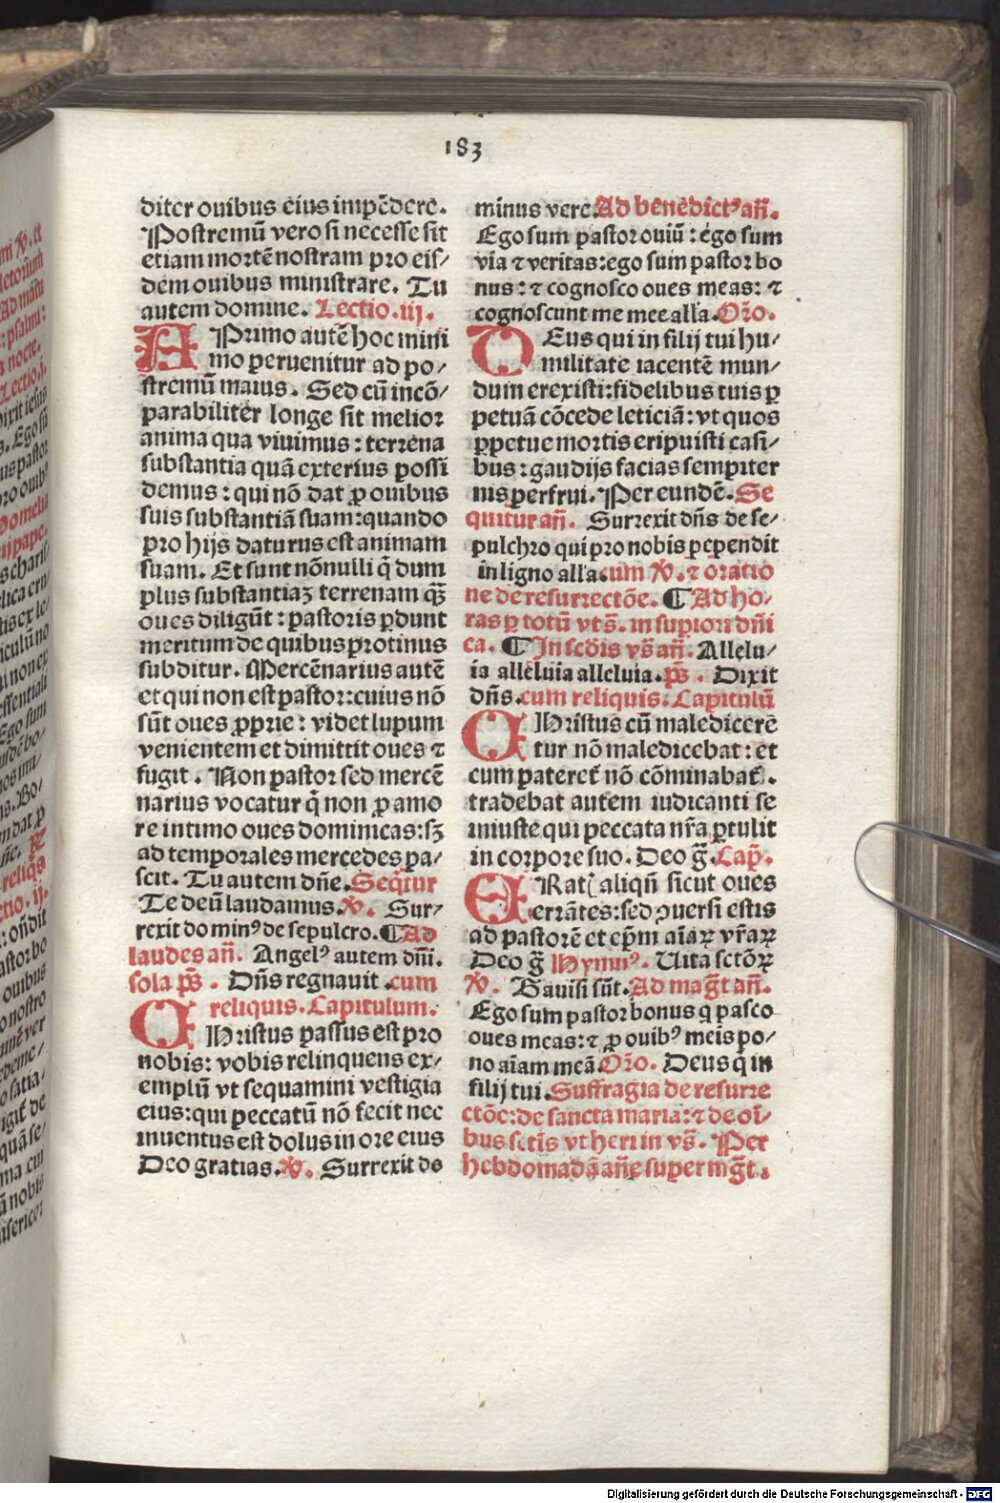 183
diter ouibus eius impēdere.
Postremū vero si necesse sit
etiam mortē nostram pro eis/
dem ouibus ministrare. Tu
autem domine. Lectio.iij.
A Primo autē hoc mini
mo peruenitur ad po/
stremū maius. Sed cū incō/
parabiliter longe sit melior
anima qua viuimus: terrena
substantia quā exterius possi
demus: qui nō dat ꝓ ouibus
suis substantiā suam: quando
pro hijs daturus est animam
suam. Et sunt nōnulli q̄ dum
plus substantiaꝫ terrenam qꝫ̄
oues diligūt: pastoris ꝑdunt
meritum de quibus protinus
subditur. Mercēnarius autē
et qui non est pastor: cuius nō
sūt oues ꝓprie: videt lupum
venientem et dimittit oues ⁊
fugit. Non pastor sed mercē
narius vocatur q̄ non ꝓ amo
re intimo oues dominicas: sꝫ
ad temporales mercedes pa/
scit. Tu autem dn̄e. Seq̄tur
Te deū laudamus. ℣. Sur/
rexit do minꝰ de sepulcro. ¶ Ad
laudes an̄. Angelꝰ autem dn̄i.
sola ps̄. Dn̄s regnauit .cum
reliquis. Capitulum.
CHristus passus est pro
nobis: vobis relinquens ex/
emplū vt sequamini vestigia
eius: qui peccatū nō fecit nec
inuentus est dolus in ore eius
Deo gratias. ℣. Surrexit do
minus vere. Ad benedictꝰ an̄.
Ego sum pastor ouiū: ego sum
via ⁊ veritas: ego sum pastor bo
nus: ⁊ cognosco oues meas: ⁊
cognoscunt me mee alla. Or̄o.
DEus qui in filij tui hu/
militate iacentē mun/
dum erexisti: fidelibus tuis ꝑ
petuā cōcede leticiā: vt quos
ꝑpetue mortis eripuisti casi/
bus: gaudijs facias sempiter
nis perfrui. Per eundē. Se
quitur an̄. Surrexit dn̄s de se/
pulchro qui pro nobis pependit
in ligno alla. cum ℣. ⁊ oratio
ne de resurrectōe. ¶ Ad ho/
ras ꝑ totū vts̄. in supiori dn̄i
ca. ¶ In scdis vs̄ an̄. Allelu/
ia alleluia alleluia. ps̄. Dixit
dn̄s. cum reliquis. Capitulū
CHristus cū malediceré
tur nō maledicebat: et
cum pateret̄ nō cōminabat̄.
tradebat autem iudicanti se
iniuste qui peccata nr̄a ꝑtulit
in corpore suo. Deo ḡ. Cap̄.
ERatꝭ aliqn̄ sicut oues
errātes: sed ꝯuersi estis
ad pastorē et ep̄m aīaꝝ vr̄aꝝ
Deo ḡ Hymnꝰ. Uita sctōꝝ
℣. Gauisi sūt. Ad mag̅t an̄.
Ego sum pastor bonus q pasco
oues meas: ⁊ ꝓ ouibꝰ meis po/
no aīam meā. Or̄o. Deus q̄ in
filij tui. Suffragia de resurre
ctōe: de sancta maria: ⁊ de oī/
bus sctīs vt heri in vs̄. Per
hebdomadā an̄e super mg̅t.
Digitalisierung gefördert durch die Deutsche Forschungsgemeinschaft - DFG